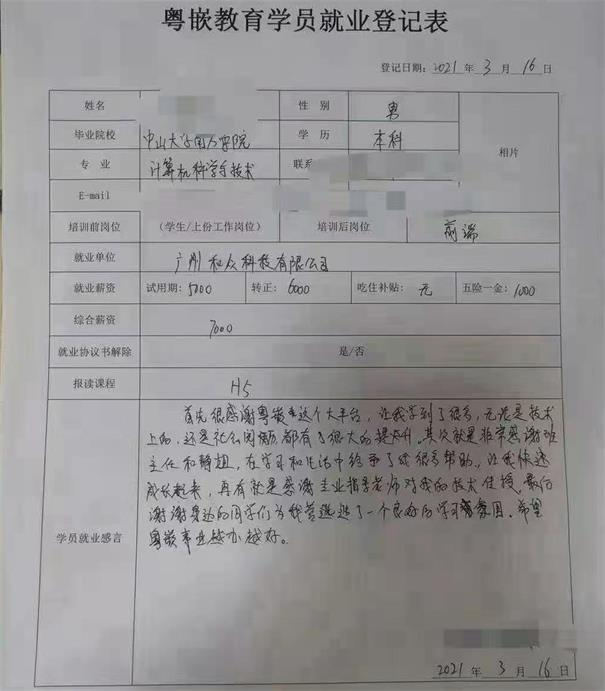 粤嵌教育学员就业登记表
登记日期：2021 年 3 月 16 日
姓名 性 别 男
毕业院校 中山大学南方学院 学 历 本科 相片
专 业 计算机科学与技术 联系
E-mail
培训前岗位 （学生/上份工作岗位） 培训后岗位 前端
就业单位 广州和众科技有限公司
就业薪资 试用期：5700 转正：6000 吃住补贴： 元 五险一金：1000
综合薪资 7000
就业协议书解除 是/否
报读课程 H5
首先很感谢粤嵌这个大平台，让我学到了很多，无论是技术
上的，还是社会阅历，都有了很大的提升。其次就是非常感谢班
主任和静姐，在学习和生活中给予了我很多帮助，让我快速
成长起来，再有就是感谢专业指导老师对我的技术传授，最后
谢谢身边的同学们为我营造了一个良好的学习氛围。希望
学员就业感言 粤嵌事业越办越好。
2021 年 3 月 16 日